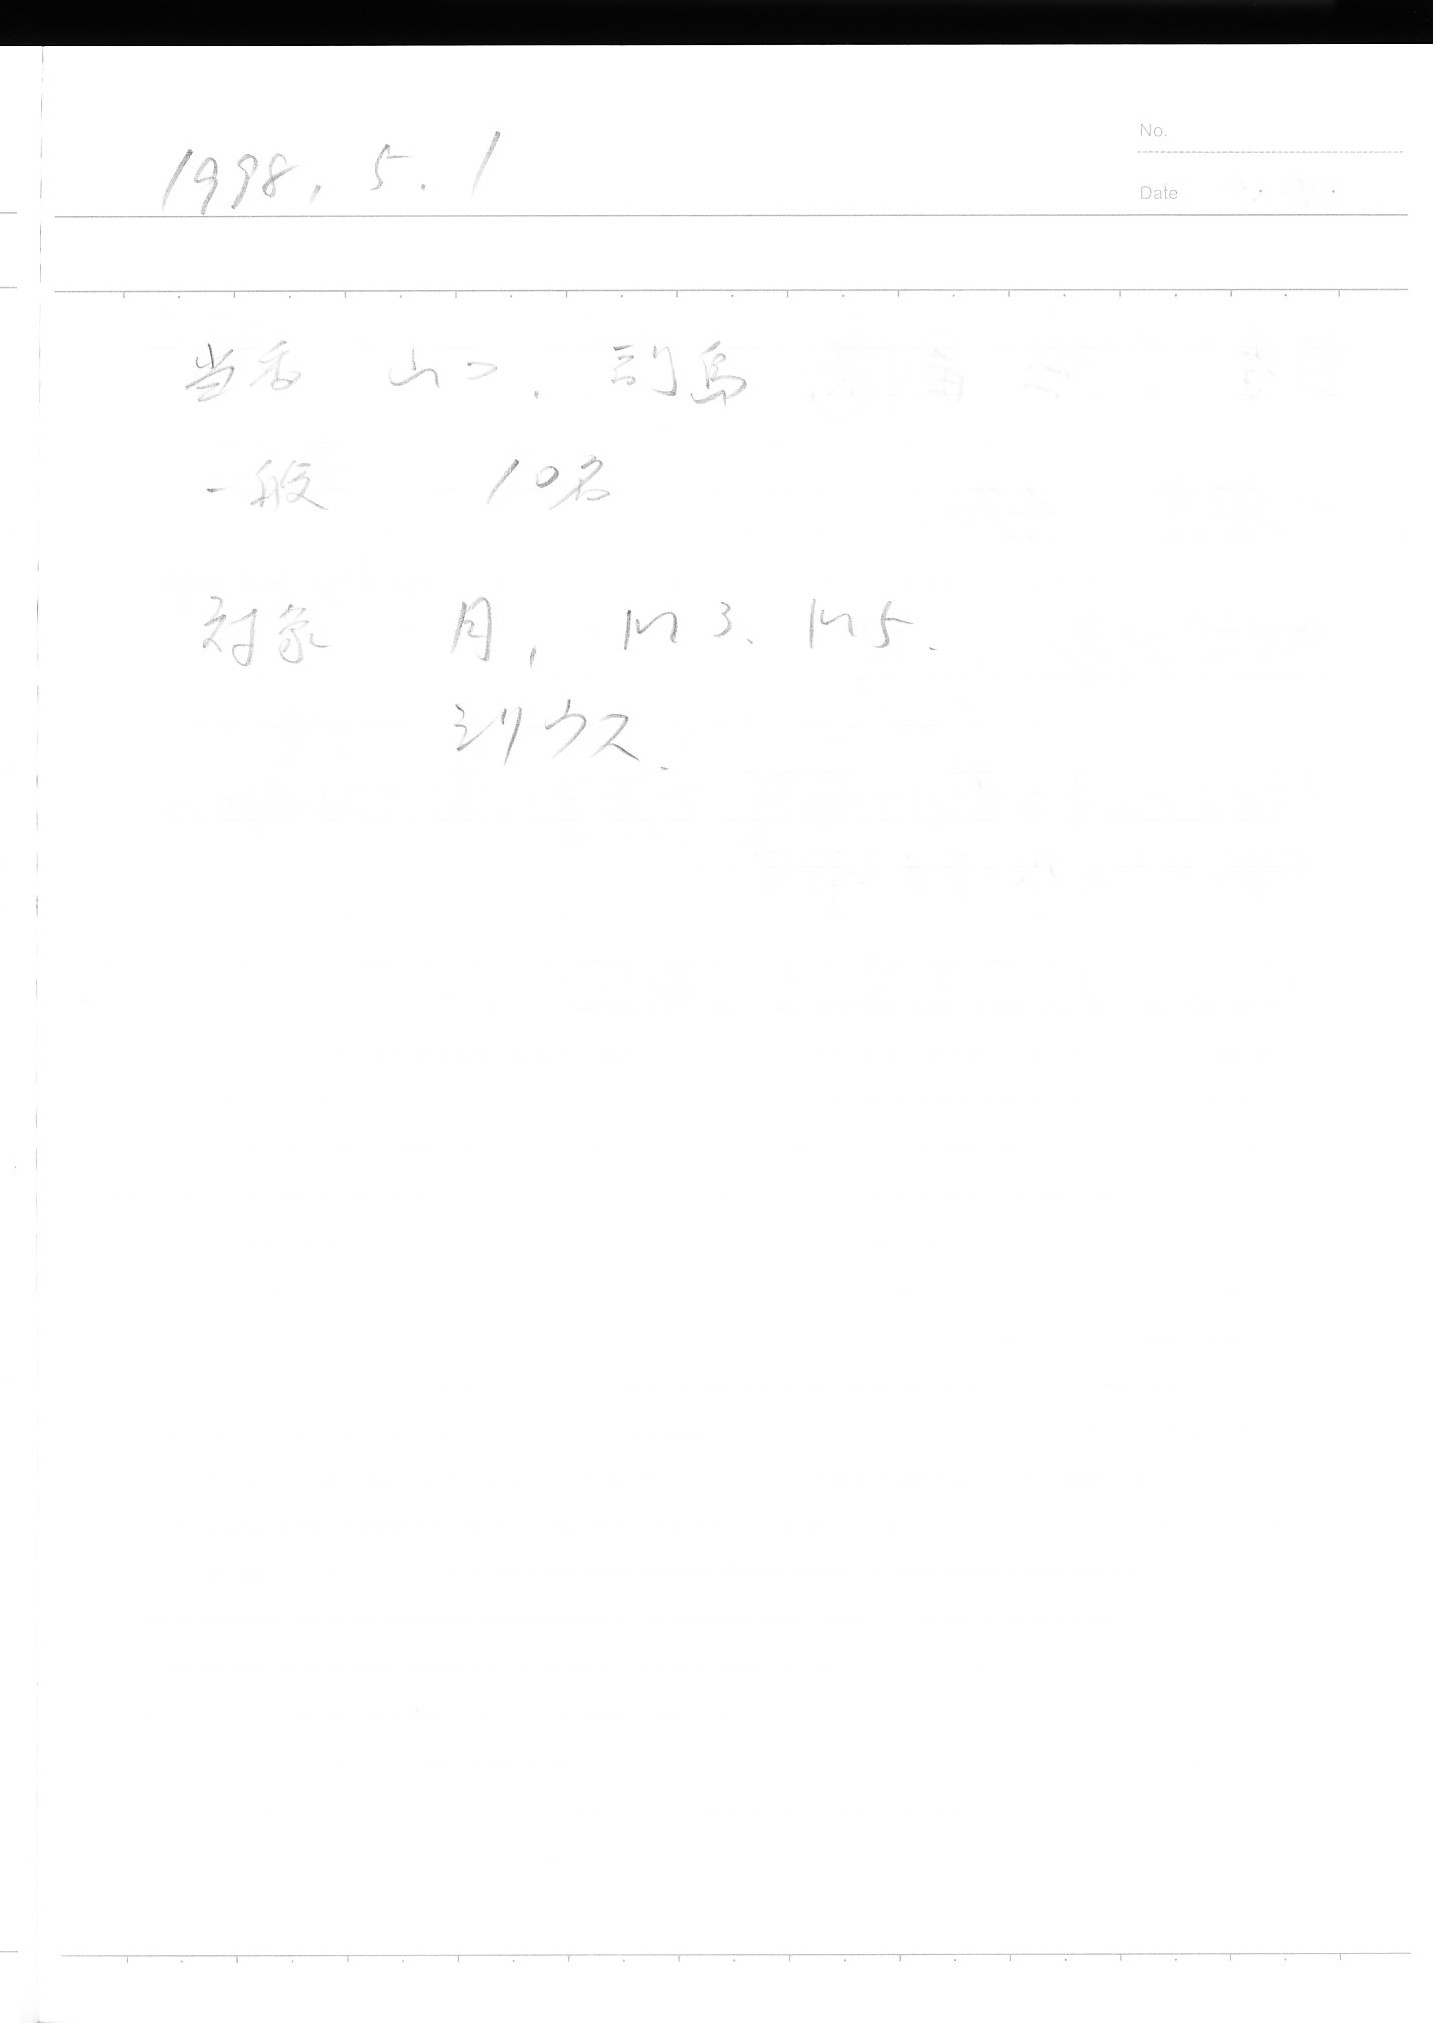 No.
1998. 5. 1
Date
当番 山口.
一般 10名
対象 月, M3、M5.
シリウス.